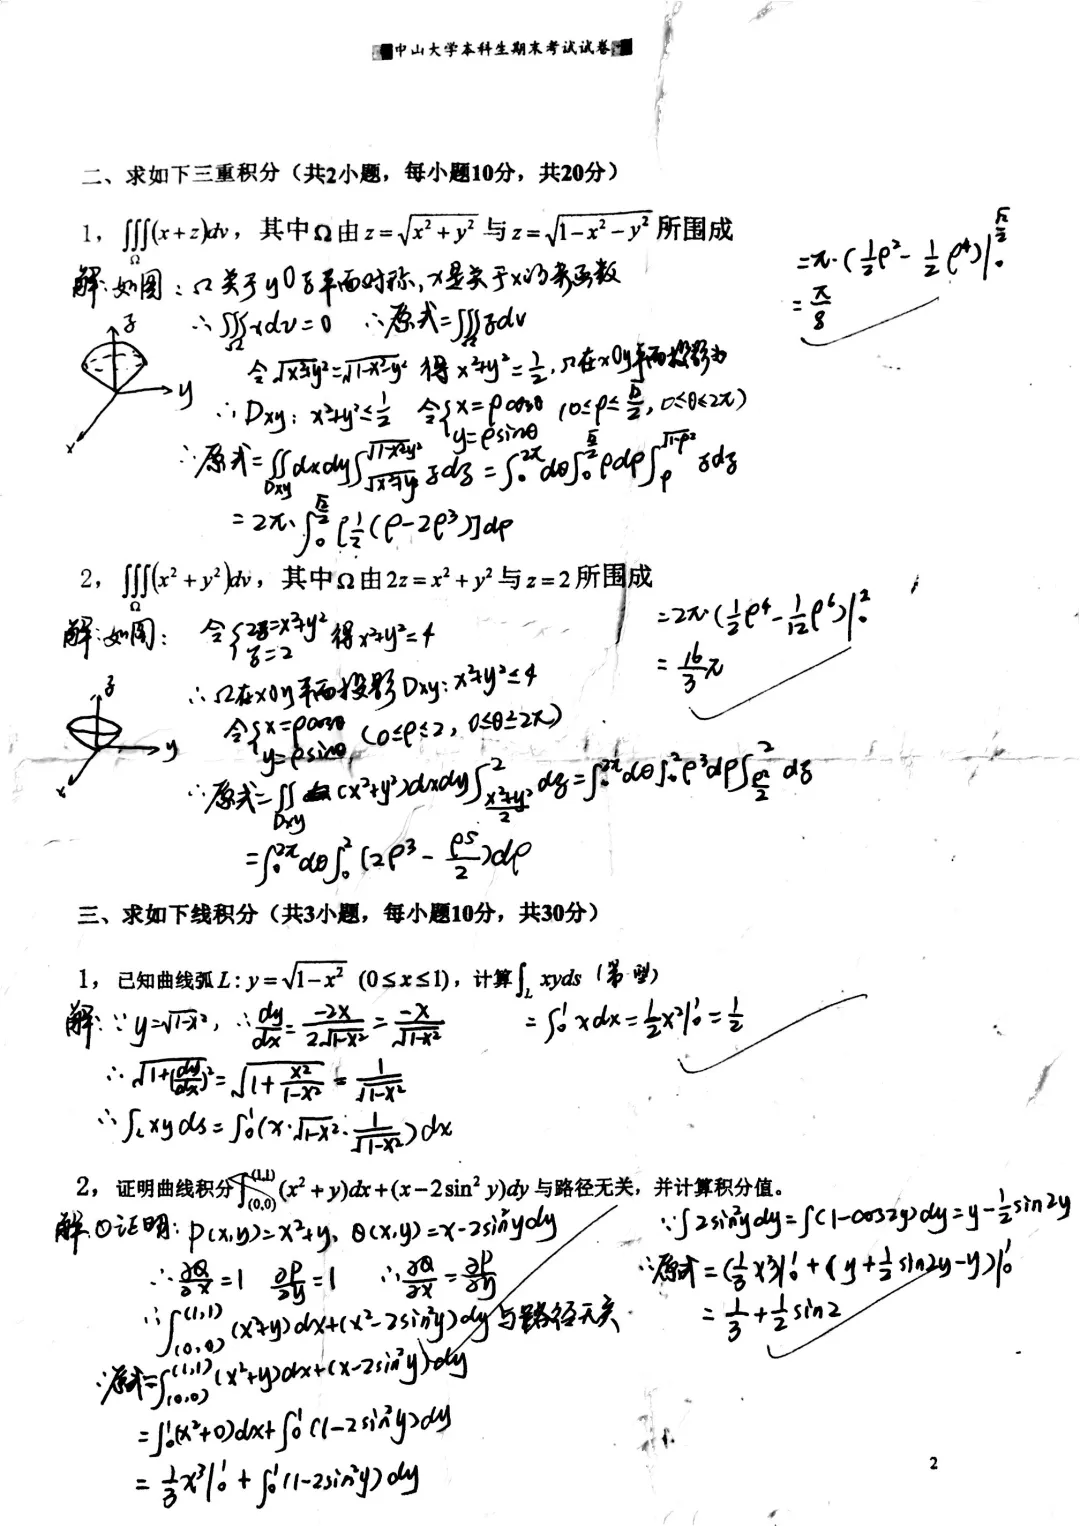 中山大学本科生期末考试试卷
二、求如下三重积分（共2小题，每小题10分，共20分）
1，∭_Ω(x+z)dv，其中Ω由z=√(x²+y²)与z=√(1-x²-y²)所围成
解:如图：Ω关于yOz平面对称,x是关于x的奇函数
∴∭_Ω xdv=0 ∴原式=∭_Ω zdv
令√(x²+y²)=√(1-x²-y²) 得x²+y²=1/2,Ω在xOy平面投影为
∴Dxy: x²+y²≤1/2 令{x=ρcosθ y=ρsinθ (0≤ρ≤√2/2, 0≤θ≤2π)
∴原式=∬_Dxy dxdy∫_{√(x²+y²)}^{√(1-x²-y²)} zdz=∫_0^{2π}dθ∫_0^{√2/2}ρdρ∫_ρ^{√(1-ρ²)} zdz
=2π·∫_0^{√2/2} [1/2(ρ-2ρ³)]dρ
=π·(1/2ρ²-1/2ρ⁴)|_0^{√2/2}
=π/8
z
y
x
2，∭_Ω(x²+y²)dv，其中Ω由2z=x²+y²与z=2所围成
解:如图: 令{2z=x²+y² z=2 得x²+y²=4
∴Ω在xOy平面投影Dxy: x²+y²≤4
令{x=ρcosθ y=ρsinθ, (0≤ρ≤2, 0≤θ≤2π)
∴原式=∬_Dxy (x²+y²)dxdy∫_{(x²+y²)/2}^2 dz=∫_0^{2π}dθ∫_0^2ρ³dρ∫_{ρ²/2}^2 dz
=∫_0^{2π}dθ∫_0^2(2ρ³-ρ⁵/2)dρ
=2π·(1/2ρ⁴-1/12ρ⁶)|_0^2
=16/3π
z
y
x
三、求如下线积分（共3小题，每小题10分，共30分）
1，已知曲线弧L:y=√(1-x²) (0≤x≤1)，计算∫_L xyds
解:∵y=√(1-x²), ∴dy/dx=-2x/(2√(1-x²))=-x/√(1-x²)
∴√(1+(dy/dx)²)=√(1+x²/(1-x²))=1/√(1-x²)
∴∫_L xyds=∫_0^1(x·√(1-x²)·1/√(1-x²))dx
=∫_0^1 xdx=1/2x²|_0^1=1/2
2，证明曲线积分∫_(0,0)^(1,1)(x²+y)dx+(x-2sin²y)dy与路径无关，并计算积分值。
解①证明: P(x,y)=x²+y, Q(x,y)=x-2sin²ydy
∴∂Q/∂x=1 ∂P/∂y=1 ∴∂Q/∂x=∂P/∂y
∴∫_(0,0)^(1,1)(x²+y)dx+(x²-2sin²y)dy与路径无关
∴原式=∫_(0,0)^(1,1)(x²+y)dx+(x-2sin²y)dy
=∫_0^1(x²+0)dx+∫_0^1(1-2sin²y)dy
=1/3x³|_0^1+∫_0^1(1-2sin²y)dy
∵∫2sin²ydy=∫(1-cos2y)dy=y-1/2sin2y
∴原式=(1/3x³)|_0^1+(y+1/2sin2y-y)|_0^1
=1/3+1/2sin2
2